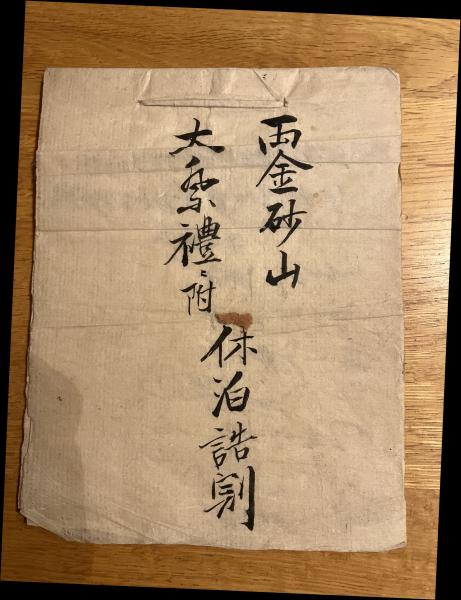 両金砂山
大祭禮ニ附
休泊諸割